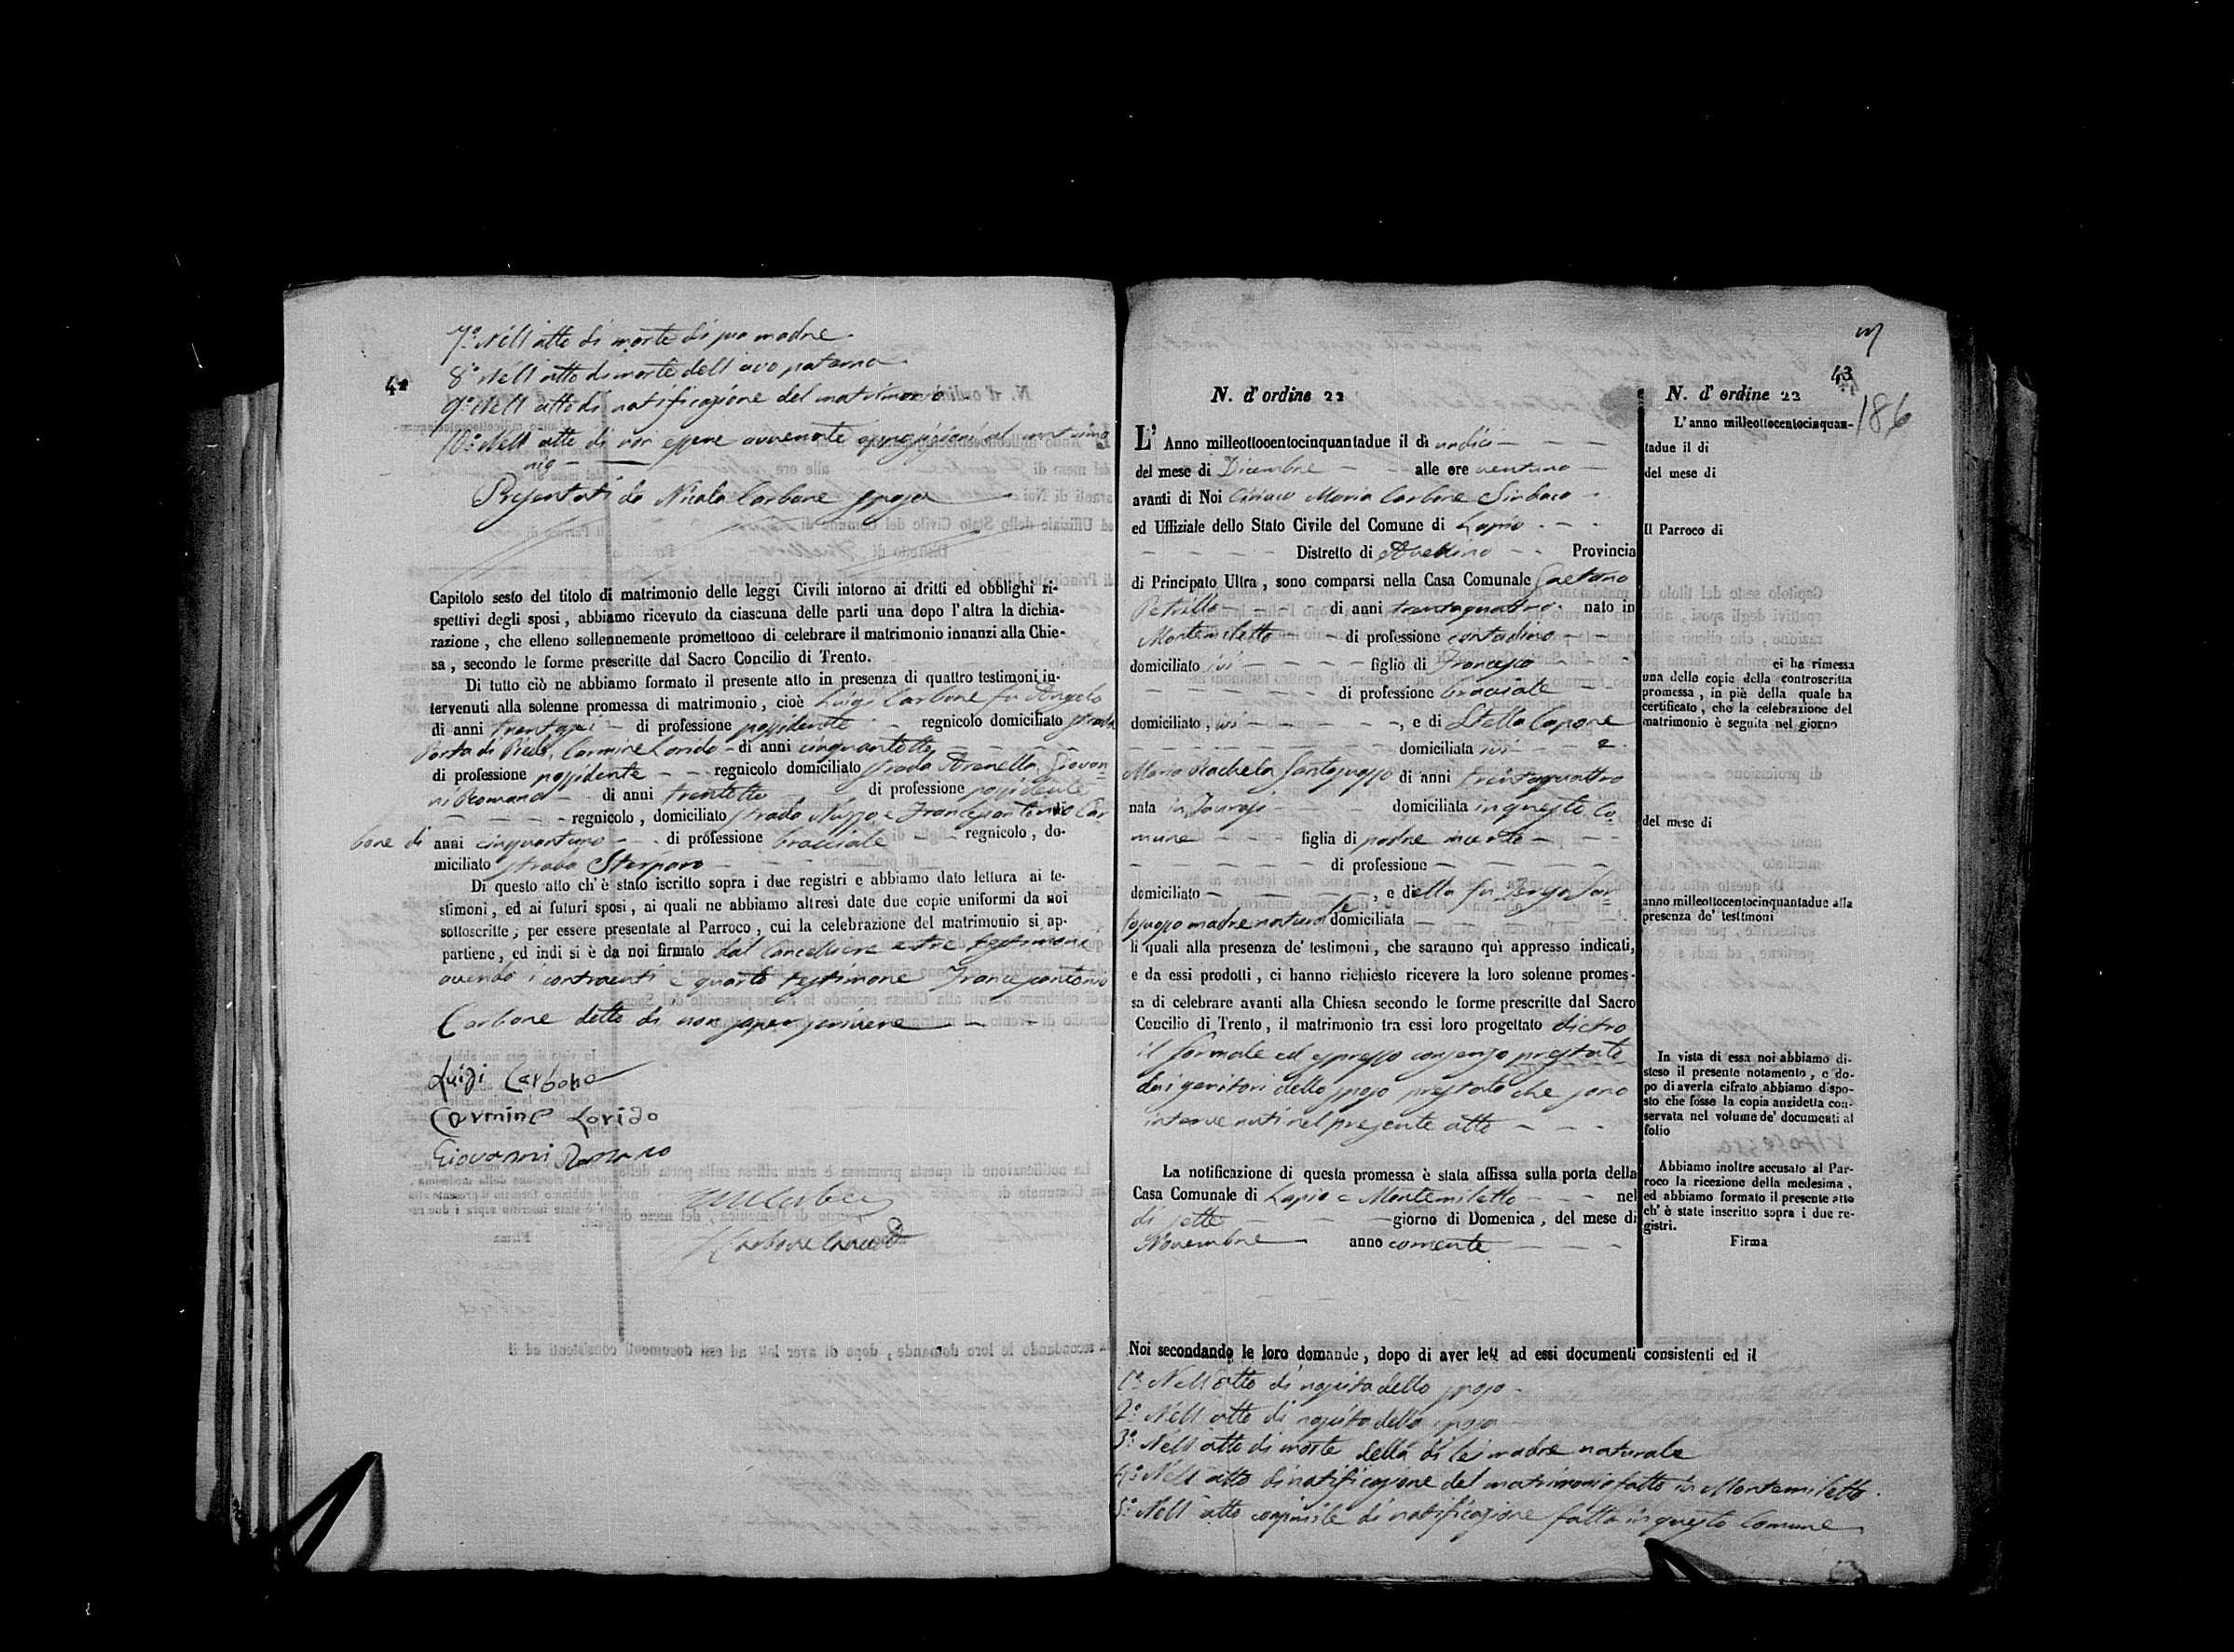 7.° Nell'atto di morte di sua madre
8.° Nell'atto di morte dell'avo paterno
9.° Nell'atto di notificazione del matrimonio
10.° Nell'atto di non essere avvenute opposizioni al matrimo
nio
Presentati da Nicola Carbone sposo
42
Capitolo sesto del titolo di matrimonio delle leggi Civili intorno ai dritti ed obblighi ri-
spettivi degli sposi, abbiamo ricevuto da ciascuna delle parti una dopo l'altra la dichia-
razione, che elleno sollennemente promettono di celebrare il matrimonio innanzi alla Chie-
sa, secondo le forme prescritte dal Sacro Concilio di Trento.
Di tutto ciò ne abbiamo formato il presente atto in presenza di quattro testimoni in-
tervenuti alla solenne promessa di matrimonio, cioè Luigi Carbone fu Angelo
di anni trentasei di professione possidente regnicolo domiciliato strada
Porta di Carmine di anni cinquantotto
di professione possidente regnicolo domiciliato strada Giovan
ni Romano di anni trentotto di professione possidente
regnicolo, domiciliato strada e Francescantonio Car
bone di anni cinquantuno di professione bracciale regnicolo, do-
miciliato strada
Di questo atto ch'è stato iscritto sopra i due registri e abbiamo dato lettura ai te-
stimoni, ed ai futuri sposi, ai quali ne abbiamo altresì date due copie uniformi da noi
sottoscritte, per essere presentate al Parroco, cui la celebrazione del matrimonio si ap-
partiene, ed indi si è da noi firmato dal Cancelliere e tre testimoni
avendo i contraenti e quarto testimone Francescantonio
Carbone detto di non saper scrivere
Luigi Carbone
Carmine
Giovanni Romano
43
186
N. d'ordine 22
L'Anno milleottocentocinquantadue il dì undici
del mese di Dicembre alle ore ventuno
avanti di Noi Ciriaco Maria Carbone Sindaco
ed Uffiziale dello Stato Civile del Comune di Lapio
Distretto di Avellino Provincia
di Principato Ultra, sono comparsi nella Casa Comunale Gaetano
Petrillo di anni trentaquattro nato in
Montemiletto di professione contadino
domiciliato ivi figlio di Francesco
di professione bracciale
domiciliato, ivi, e di Stella Capone
domiciliata ivi e
Maria Rachela Santosuosso di anni trentaquattro
nata in Taurasi domiciliata in questo Co
mune figlia di padre incerto
di professione
domiciliato, e di ella fu San
tosuosso madre naturale domiciliata
li quali alla presenza de' testimoni, che saranno quì appresso indicati,
e da essi prodotti, ci hanno richiesto ricevere la loro solenne promes-
sa di celebrare avanti alla Chiesa secondo le forme prescritte dal Sacro
Concilio di Trento, il matrimonio tra essi loro progettato dietro
il formale ed espresso consenso prestato
dai genitori dello sposo prestato che sono
intervenuti nel presente atto
La notificazione di questa promessa è stata affissa sulla porta della
Casa Comunale di Lapio e Montemiletto nel
dì sette giorno di Domenica, del mese di
Novembre anno corrente
N. d'ordine 22
L'anno milleottocentocinquan-
tadue il dì
del mese di
Il Parroco di
ci ha rimessa
una delle copie della controscritta
promessa, in piè della quale ha
certificato, che la celebrazione del
matrimonio è seguita nel giorno
del mese di
anno milleottocentocinquantadue alla
presenza de' testimoni
In vista di essa noi abbiamo di-
steso il presente notamento, e do-
po di averla cifrato abbiamo dispo-
sto che fosse la copia anzidetta con-
servata nel volume de' documenti al
folio
Abbiamo inoltre accusato al Par-
roco la ricezione della medesima,
ed abbiamo formato il presente atto
ch'è stato inscritto sopra i due re-
gistri.
Firma
Noi secondando le loro domande, dopo di aver letti ad essi documenti consistenti ed il
1.° Nell'atto di nascita dello sposo
2.° Nell'atto di nascita della sposa
3.° Nell'atto di morte della di lei madre naturale
4.° Nell'atto di notificazione del matrimonio fatto in Montemiletto
5.° Nell'atto consimile di notificazione fatta in questo Comune